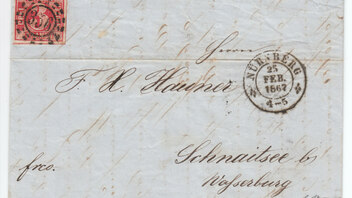 Herrn
NÜRNBERG
25
FEB.
1867
4-5
F. X.
frco.
Schnaitsee b/
Wasserburg